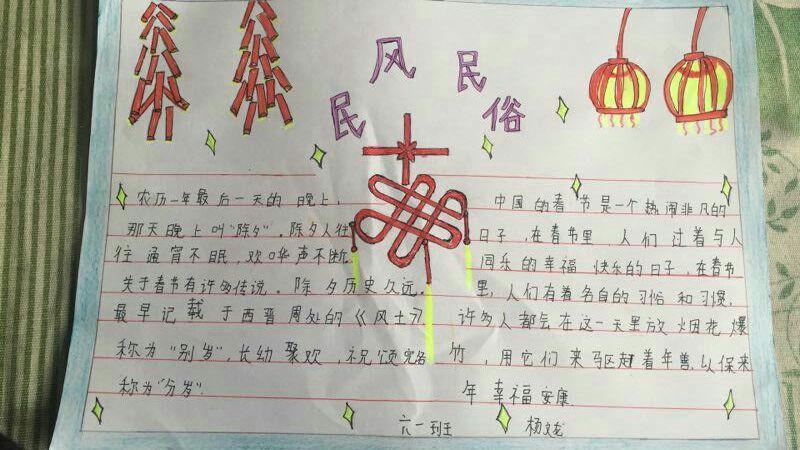 民风民俗
农历一年最后一天的晚上,
那天晚上叫"除夕".除夕人往
往通宵不眠,欢哗声不断.
关于春节有许多传说.除夕历史久远,
最早记载于西晋周处的《风土记
称为"别岁",长幼聚欢,祝颂完备
称为"分岁".
中国的春节是一个热闹非凡的
日子,在春节里人们过着与人
同乐的幸福快乐的日子,在春节
里,人们有着各自的习俗和习惯,
许多人都会在这一天里放烟花爆
竹,用它们来驱赶着年兽.以保来
年幸福安康.
六一班 杨文龙